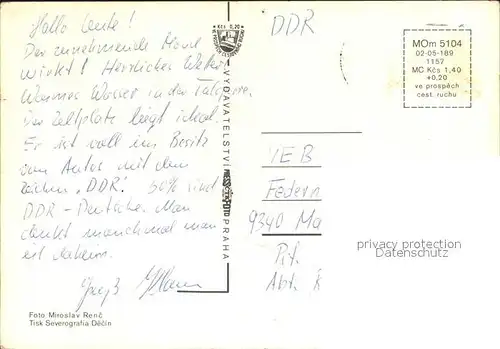 Hallo Leute!
Der zunehmende Mond
wirkt! Herrliches Wetter
Warmes Wasser in der Talsperre.
Der Zeltplatz liegt ideal.
Er ist voll im Besitz
von Autos mit dem
Zeichen „DDR". 50% sind
DDR-Deutsche. Man
denkt manchmal man
ist daheim.
Gruß
Foto Miroslav Renč
Tisk Severografia Děčín
Kčs 0,20
VYDAVATELSTVÍ PRAHA
DDR
MOm 5104
02-05-189
1157
MC Kčs 1,40
+0,20
ve prospěch
cest. ruchu
VEB
Federn
9340 Ma
Abt.
privacy protection
Datenschutz